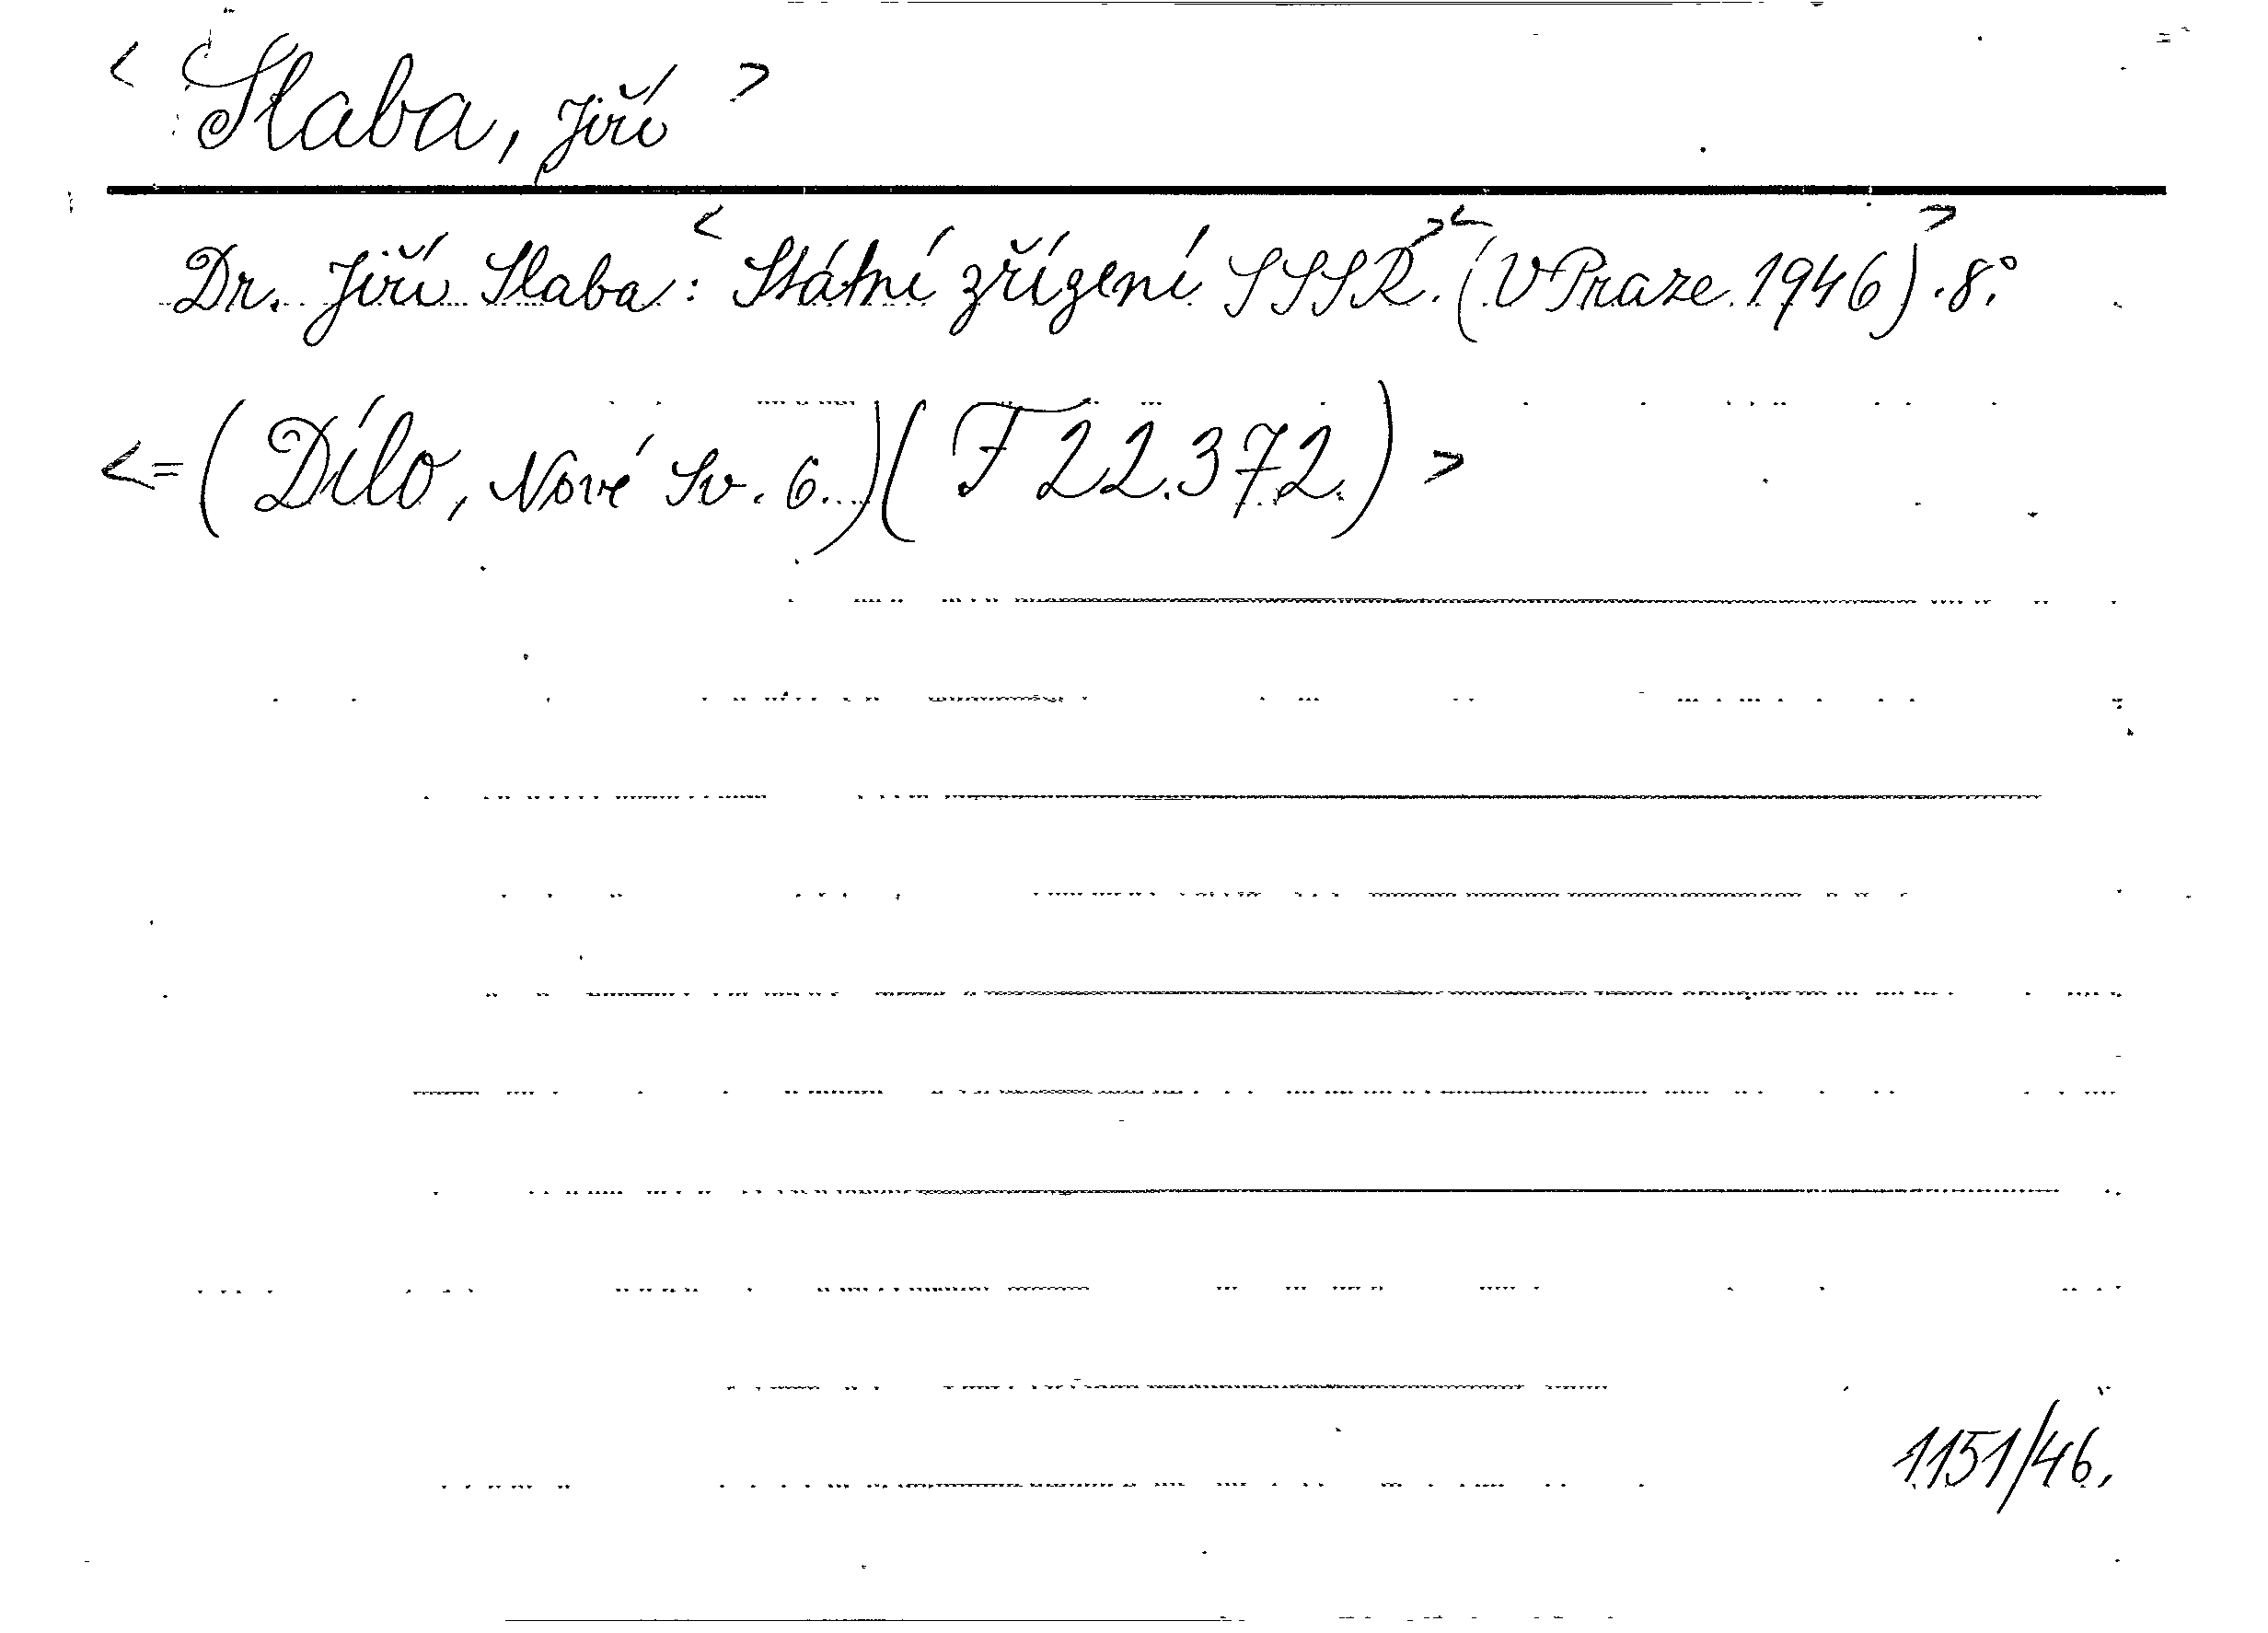 < Slaba, Jiří >
Dr. Jiří Slaba: <Státní zřízení SSSR.><(V Praze. 1946)>. 8.°
<=(Dílo, Nové Sv. 6.)(F 22.372.)>
1151/46.